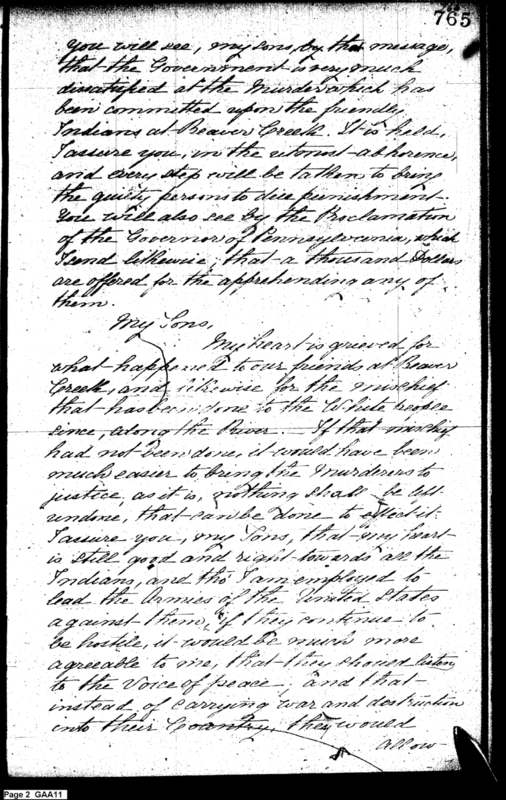 765
You will see, my sons, by that message,
that the Government is very much
dissatisfied at the Murder which has
been committed upon the friendly
Indians at Beaver Creek. It is held,
I assure you, in the utmost abhorence,
and every step will be taken to bring
the guilty persons to due punishment.
You will also see by the Proclamation
of the Governor of Pennsylvania, which
I send likewise, that a thousand Dollars
are offered for the apprehending any of
them.
My Sons,
My heart is grieved for
what happened to our friends at Beaver
Creek, and likewise for the mischief
that has been done to the White people
since, along the River. If that mischief
had not been done, it would have been
much easier to bring the Murderers to
justice, as it is, nothing shall be left
undone, that can be done to effect it.
I assure you, my Sons, that my heart
is still good and right towards all the
Indians, and tho' I am employed to
lead the Armies of the United States
against them, if they continue to
be hostile, it would be much more
agreeable to me, that they should listen
to the Voice of peace, and that
instead of carrying war and destruction
into their Country, they would
allow
Page 2 GAA11